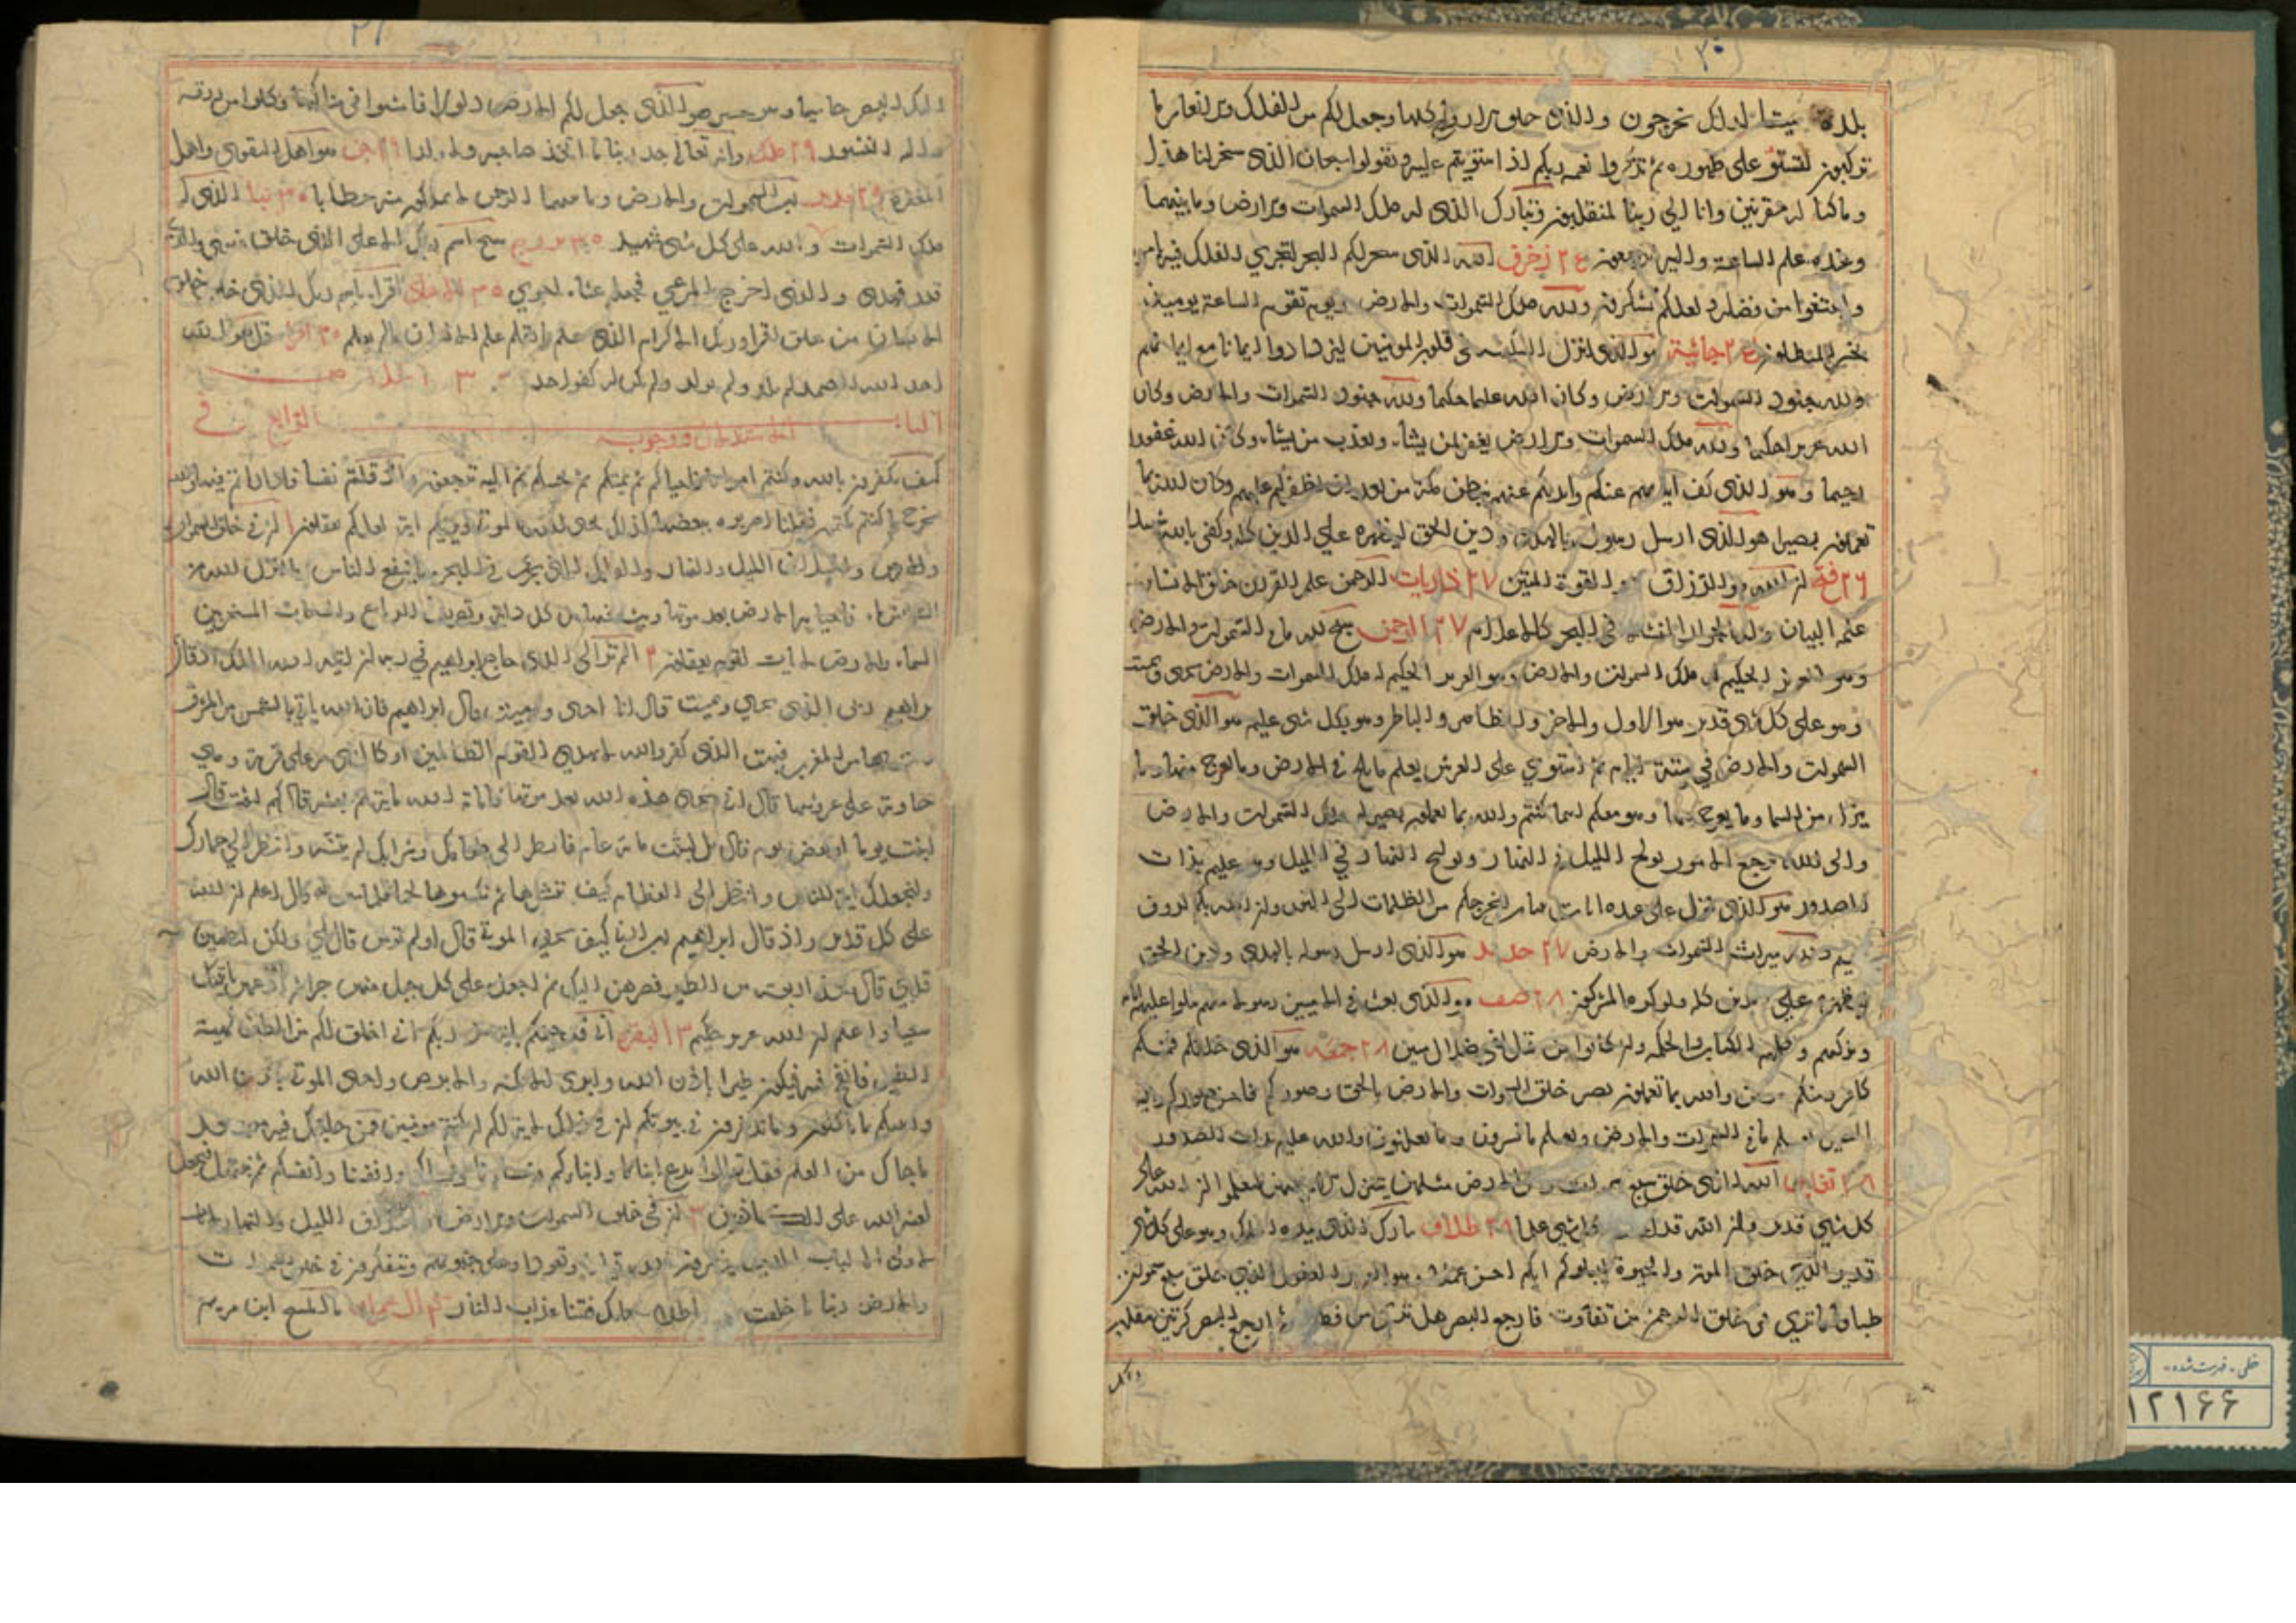 ٣٠
بلدة ميتا كذلك تخرجون والذي خلق الازواج كلها وجعل لكم من الفلك والانعام ما
تركبون لتستووا على ظهوره ثم تذكروا نعمة ربكم اذا استويتم عليه وتقولوا سبحان الذي سخر لنا هذا
وما كنا له مقرنين وانا الي ربنا لمنقلبون وتبارك الذي له ملك السموات والارض وما بينهما
وعنده علم الساعة واليه ترجعون ٢٤ زخرف الله الذي سخر لكم البحر لتجري الفلك فيه بامره
وابتغوا من فضله ولعلكم تشكرون ولله ملك السموات والارض ويوم تقوم الساعة يوميذ
يخسر المبطلون ٢٤ جاثية هو الذي انزل السكينة في قلوب المومنين ليزدادوا ايمانا مع ايمانهم
ولله جنود السموات والارض وكان الله عليما حكيما ولله جنود السموات والارض وكان
الله عزيزا حكيما ولله ملك السموات والارض يغفر لمن يشاء ويعذب من يشاء وكان الله غفورا
رحيما وهو الذي كف ايديهم عنكم وايديكم عنهم ببطن مكة من بعد ان اظفركم عليهم وكان الله بما
تعملون بصيرا هو الذي ارسل رسوله بالهدى ودين الحق ليظهره علي الدين كله وكفى بالله شهيدا
٢٦ فتح ان الله هو الرزاق ذو القوة المتين ٢٧ ذاريات الرحمن علم القران خلق الانسان
علمه البيان وله الجوار المنشات في البحر كالاعلام ٢٧ الرحمن سبح لله ما في السموات والارض
وهو العزيز الحكيم له ملك السموات والارض وهو العزيز الحكيم له ملك السموات والارض يحيي ويميت
وهو على كل شي قدير هو الاول والاخر والظاهر والباطن وهو بكل شي عليم هو الذي خلق
السموات والارض في ستة ايام ثم استوي على العرش يعلم ما يلج في الارض وما يخرج منها وما
ينزل من السما وما يعرج فيها وهو معكم اينما كنتم والله بما تعملون بصير له ملك السموات والارض
والى الله ترجع الامور يولج الليل في النهار ويولج النهار في الليل وهو عليم بذات
الصدور هو الذي ينزل على عبده ايات بينات ليخرجكم من الظلمات الى النور وان الله بكم لروف
رحيم ولله ميراث السموات والارض ٢٧ حديد هو الذي ارسل رسوله بالهدى ودين الحق
ليظهره علي الدين كله ولو كره المشركون ٢٨ صف هو الذي بعث في الاميين رسولا منهم يتلوا عليهم اياته
ويزكيهم ويعلمهم الكتاب والحكمة وان كانوا من قبل لفي ضلال مبين ٢٨ جمعة هو الذي خلقكم فمنكم
كافر ومنكم مومن والله بما تعملون بصير خلق السموات والارض بالحق وصوركم فاحسن صوركم واليه
المصير يعلم ما في السموات والارض ويعلم ما تسرون وما تعلنون والله عليم بذات الصدور
٢٨ تغابن الله الذي خلق سبع سموات ومن الارض مثلهن يتنزل الامر بينهن لتعلموا ان الله على
كل شي قدير وان الله قد احاط بكل شي علما ٢٨ طلاق تبارك الذي بيده الملك وهو على كل شي
قدير الذي خلق الموت والحيوة ليبلوكم ايكم احسن عملا وهو العزيز الغفور الذي خلق سبع سموات
طباقا ما تري في خلق الرحمن من تفاوت فارجع البصر هل ترى من فطور ثم ارجع البصر كرتين ينقلب
٣١
اليك البصر خاسيا وهو حسير هو الذي جعل لكم الارض ذلولا فامشوا في مناكبها وكلوا من رزقه
واليه النشور ٢٩ ملك وانه تعالى جد ربنا ما اتخذ صاحبة ولا ولدا ٢٩ جن هو اهل التقوى واهل
المغفرة ٢٩ مدثر رب السموات والارض وما بينهما الرحمن لا يملكون منه خطابا ٣٠ نبا الذي له
ملك السموات والله على كل شي شهيد ٣٠ بروج سبح اسم ربك الاعلى الذي خلق فسوى والذي
قدر فهدى والذي اخرج المرعي فجعله غثاء احوي ٣٠ الاعلى اقرا باسم ربك الذي خلق خلق
الانسان من علق اقرا وربك الاكرم الذي علم بالقلم علم الانسان ما لم يعلم ٣٠ اقرا قل هو الله
احد الله الصمد لم يلد ولم يولد ولم يكن له كفوا احد ٣٠
الباب الرابع في
كيف تكفرون بالله وكنتم امواتا فاحياكم ثم يميتكم ثم يحييكم ثم اليه ترجعون واذ قتلتم نفسا فاداراتم فيها والله
مخرج ما كنتم تكتمون فقلنا اضربوه ببعضها كذلك يحيي الله الموتى ويريكم اياته لعلكم تعقلون ان في خلق السموات
والارض واختلاف الليل والنهار والفلك التي تجري في البحر بما ينفع الناس وما انزل الله من
السماء من ماء فاحيا به الارض بعد موتها وبث فيها من كل دابة وتصريف الرياح والسحاب المسخر بين
السماء والارض لايات لقوم يعقلون ٢ الم تر الى الذي حاج ابراهيم في ربه ان اتيه الله الملك اذ قال
ابراهيم ربي الذي يحيي ويميت قال انا احيي واميت قال ابراهيم فان الله ياتي بالشمس من المشرق
فات بها من المغرب فبهت الذي كفر والله لا يهدي القوم الظالمين او كالذي مر على قرية وهي
خاوية على عروشها قال انى يحيي هذه الله بعد موتها فاماته الله ماية عام ثم بعثه قال كم لبثت قال
لبثت يوما او بعض يوم قال بل لبثت ماية عام فانظر الى طعامك وشرابك لم يتسنه وانظر الي حمارك
ولنجعلك اية للناس وانظر الى العظام كيف ننشزها ثم نكسوها لحما فلما تبين له قال اعلم ان الله
على كل شي قدير واذ قال ابراهيم رب ارني كيف تحيي الموتى قال اولم تومن قال بلي ولكن ليطمين
قلبي قال فخذ اربعة من الطير فصرهن اليك ثم اجعل على كل جبل منهن جزءا ثم ادعهن ياتينك
سعيا واعلم ان الله عزيز حكيم ٣ البقرة اني قد جئتكم باية من ربكم اني اخلق لكم من الطين كهيئة
الطير فانفخ فيه فيكون طيرا باذن الله وابرئ الاكمه والابرص واحيي الموتى باذن الله
وانبئكم بما تاكلون وما تدخرون في بيوتكم ان في ذلك لاية لكم ان كنتم مومنين فمن حاجك فيه من بعد
ما جاك من العلم فقل تعالوا ندع ابنانا وابناكم ونسانا ونساكم وانفسنا وانفسكم ثم نبتهل فنجعل
لعنة الله على الكاذبين ٣ ان في خلق السموات والارض واختلاف الليل والنهار لايات
لاولي الالباب الذين يذكرون الله قياما وقعودا وعلى جنوبهم ويتفكرون في خلق السموات
والارض ربنا ما خلقت هذا باطلا سبحانك فقنا عذاب النار ٤ ال عمران ما المسيح ابن مريم
خطی - فهرست شده
١٢١٦۶